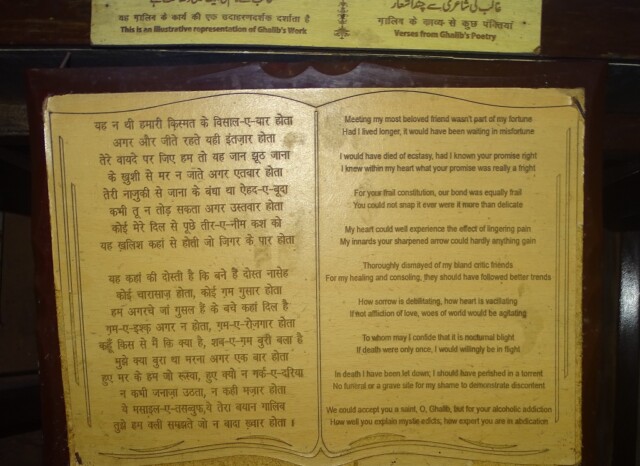 غالب کی شاعری سے چند اشعار
यह ग़ालिब के कार्य की एक उदाहरणदर्शक दर्शाता है
This is an illustrative representation of Ghalib's Work
ग़ालिब के काव्य से कुछ पंक्तियां
Verses from Ghalib's Poetry
यह न थी हमारी क़िस्मत के विसाल-ए-यार होता
अगर और जीते रहते यही इंतज़ार होता
तेरे वायदे पर जिए हम तो यह जान झूठ जाना
के ख़ुशी से मर न जाते अगर एतवार होता
तेरी नाज़ुकी से जाना के बंधा था ऐहद-ए-बूदा
कभी तू न तोड़ सकता अगर उस्तवार होता
कोई मेरे दिल से पूछे तीर-ए-नीम कश को
यह ख़लिश कहां से होती जो जिगर के पार होता
यह कहां की दोस्ती है कि बने हैं दोस्त नासेह
कोई चारासाज़ होता, कोई ग़म गुसार होता
हम अगरचे जां गुसल है के बचे कहां दिल है
ग़म-ए-इश्क़ अगर न होता, ग़म-ए-रोज़गार होता
कहूँ किस से मैं कि क्या है, शब-ए-ग़म बुरी बला है
मुझे क्या बुरा था मरना अगर एक बार होता
हुए मर के हम जो रूस्वा, हुए क्यों न गर्क-ए-दरिया
न कभी जनाज़ा उठता, न कही मज़ार होता
ये मसाइल-ए-तसव्वुफ़,ये तेरा बयान ग़ालिब
तुझे हम वली समझते जो न बादा ख़्वार होता ।
Meeting my most beloved friend wasn't part of my fortune
Had I lived longer, it would have been waiting in misfortune
I would have died of ecstasy, had I known your promise right
I knew within my heart what your promise was really a fright
For your frail constitution, our bond was equally frail
You could not snap it ever were it more than delicate
My heart could well experience the effect of lingering pain
My innards your sharpened arrow could hardly anything gain
Thoroughly dismayed of my bland critic friends
For my healing and consoling, they should have followed better trends
How sorrow is debilitating, how heart is vacillating
If not affliction of love, woes of world would be agitating
To whom may I confide that it is nocturnal blight
If death were only once, I would willingly be in flight
In death I have been let down, I should have perished in a torrent
No funeral or a grave site for my shame to demonstrate discontent
We could accept you a saint, O, Ghalib, but for your alcoholic addiction
How well you explain mystic edicts, how expert you are in abdication